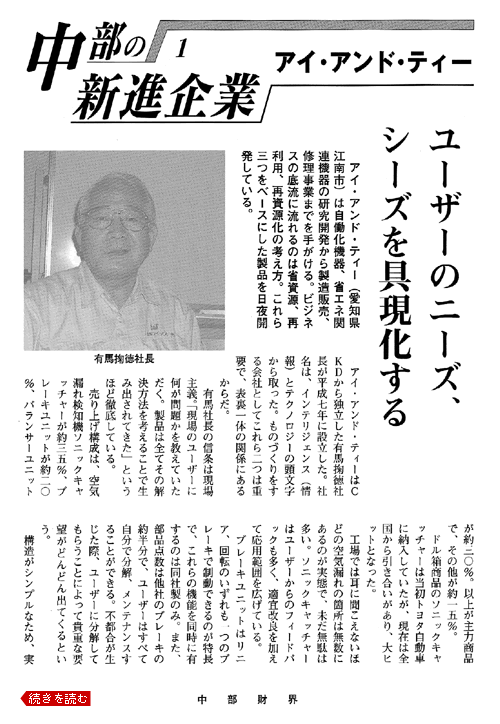 中部の
新進企業
1
アイ・アンド・ティー
ユーザーのニーズ、
シーズを具現化する
アイ・アンド・ティー（愛知県
江南市）は自働化機器、省エネ関
連機器の研究開発から製造販売、
修理事業までを手がける。ビジネ
スの底流に流れるのは省資源、再
利用、再資源化の考え方。これら
三つをベースにした製品を日夜開
発している。
有馬掬徳社長
アイ・アンド・ティーはC
KDから独立した有馬掬徳社
長が平成七年に設立した。社
名は、インテリジェンス（情
報）とテクノロジーの頭文字
から取った。ものづくりをす
る会社としてこれら二つは重
要で、表裏一体の関係にある
からだ。
有馬社長の信条は現場
主義。「現場のユーザーに
何が問題かを教えていた
だく。製品は全てその解
決方法を考えることで生
み出されてきた」という
ほど徹底している。
売り上げ構成は、空気
漏れ検知機ソニックキャ
ッチャーが約三五％、ブ
レーキユニットが約二〇
％、バランサーユニット
が約三〇％。以上が主力商品
で、その他が約一五％。
ドル箱商品のソニックキャ
ッチャーは当初トヨタ自動車
に納入していたが、現在は全
国から引き合いがあり、大ヒ
ットとなった。
工場では耳に聞こえないほ
どの空気漏れの箇所は無数に
あるのが実態で、未だ無駄は
多い。ソニックキャッチャー
はユーザーからのフィードバ
ックも多く、適宜改良を加え
て応用範囲を広げている。
ブレーキユニットはリニ
ア、回転のいずれも一つのブ
レーキで制動できるのが特長
で、これらの機能を同時に有
するのは同社製のみ。また、
部品点数は他社のブレーキの
約半分で、ユーザーはすべて
自分で分解、メンテナンスす
ることができる。不都合が生
じた際、ユーザーに分解して
もらうことによって貴重な要
望がどんどん出てくるとい
う。
構造がシンプルなため、実
続きを読む
中部財界